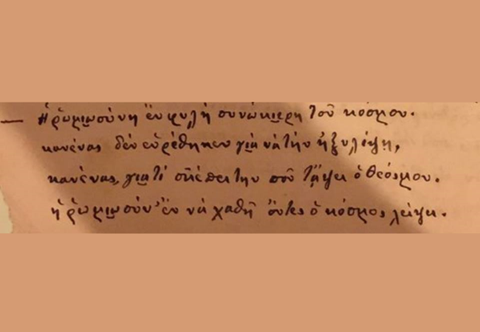 Ἡ ῥωμιοσύνη ἔν φυλὴ συνώκιερη τοῦ κόσμου.
κανένας δὲν εὑρέθηκεν γιὰ νὰ τὴν ἠξυλίψῃ,
κανένας, γιατὶ σκέπει την ποῦ τἄψη ὁ θεός μου.
ἡ ῥωμιοσύν' ἔν νὰ χαθῇ ὄντες ὁ κόσμος λείψη.